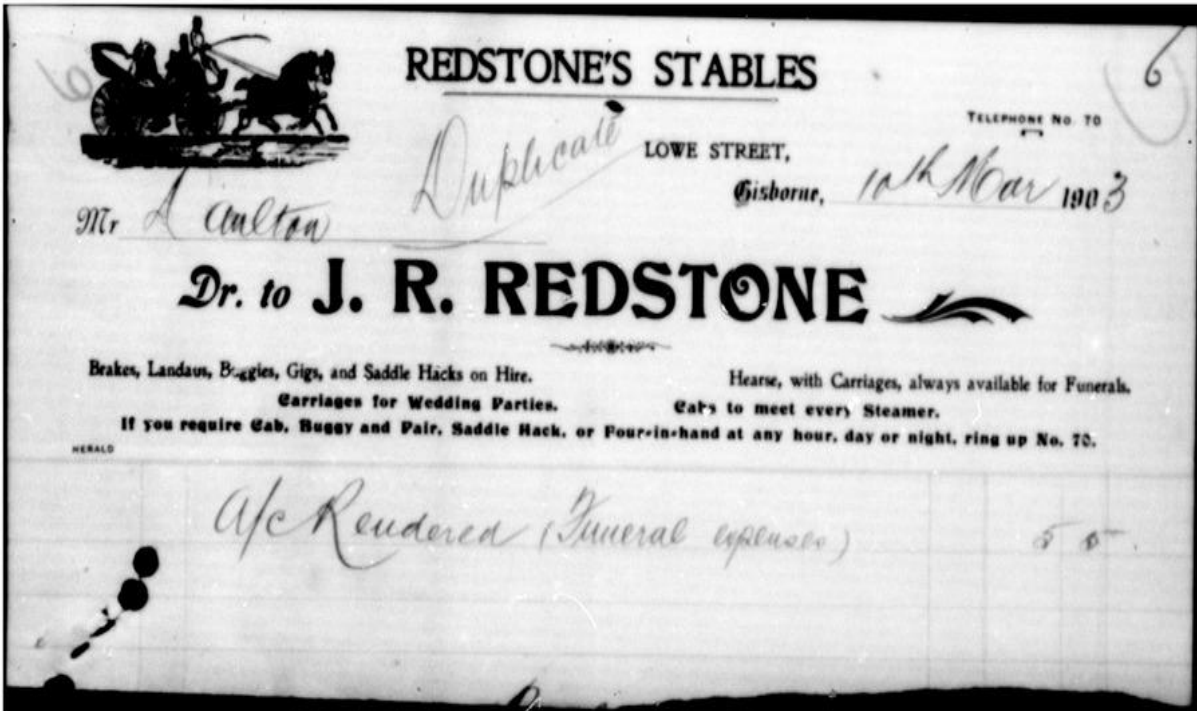 6
REDSTONE'S STABLES
TELEPHONE No. 70
Duplicate
LOWE STREET,
Gisborne, 10th Mar 1903
Mr
Dr. to J. R. REDSTONE
Brakes, Landaus, Buggies, Gigs, and Saddle Hacks on Hire.
Hearse, with Carriages, always available for Funerals.
Carriages for Wedding Parties.
Cabs to meet every Steamer.
If you require Cab, Buggy and Pair, Saddle Hack, or Four-in-hand at any hour, day or night, ring up No. 70.
HERALD
A/c Rendered (Funeral expenses) 5 5